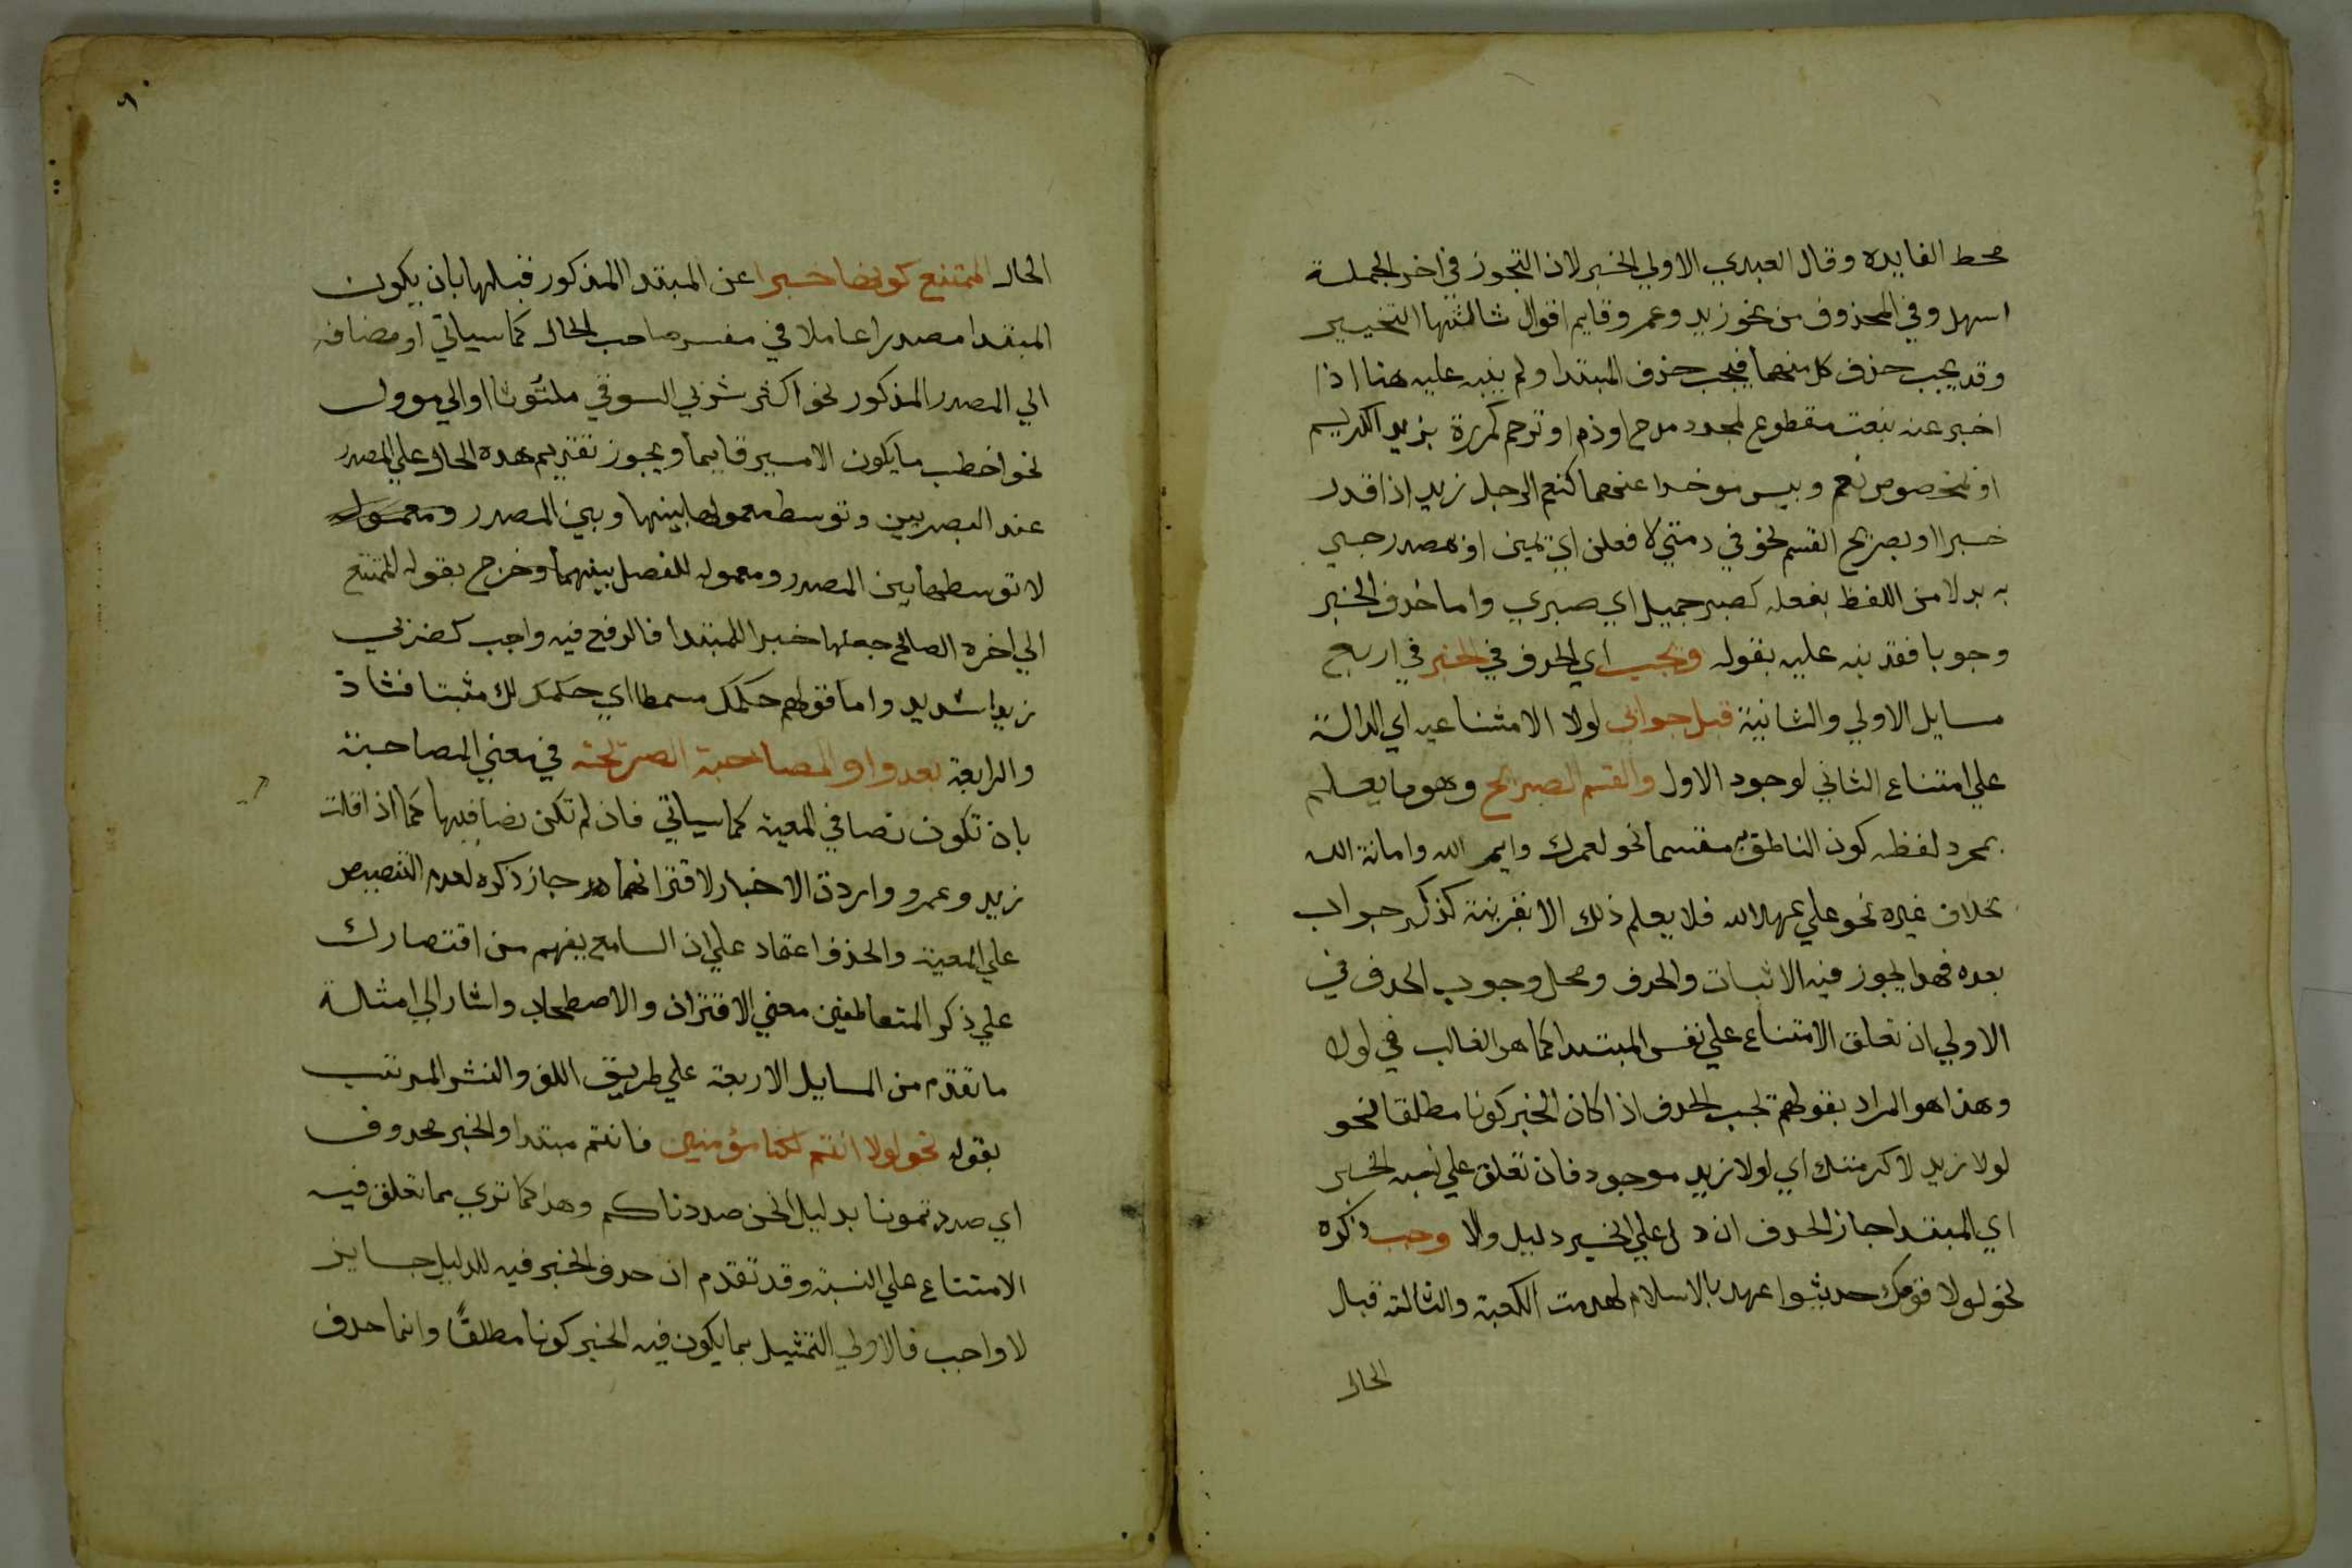 محط الفايده وقال العبدي الاولي الخبر لان التجوز في اخر الجملة
اسهل وفي المحذوف من نحو زيد وعمرو قايم اقوال ثالثها التخيير
وقد يجب حذف كل منهما فيجب حذف المبتدا ولم ينبه عليه هنا اذا
اخبر عنه بنعت مقطوع لمجرد مدح او ذم او ترحم كمررة بزيد الكريم
او بمخصوص نعم وبيس موخرا عنهما كنعم الرجل زيد اذا قدر
خبرا او بصريح القسم نحو في ذمتي لافعلن اي يمين او بمصدر جيي
به بدلا من اللفظ بفعله كصبر جميل اي صبري واما حذف الخبر
وجوبا فقد نبه عليه بقوله ويجب اي الحذف في الخبر في اربع
مسايل الاولي والثانية قبل جوابي لولا الامتناعيه اي الدالة
علي امتناع الثاني لوجود الاول والقسم الصريح وهو ما يعلم
بمجرد لفظه كون الناطق به مقسما نحو لعمرك وايم الله وامانة الله
بخلاف غيره نحو علي عهد الله فلا يعلم ذلك الا بقرينة كذكر جواب
بعده فهذا يجوز فيه الاثبات والحذف ومحل وجوب الحذف في
الاولي ان تعلق الامتناع علي نفس المبتدا كما هو الغالب في لولا
وهذا هو المراد بقولهم يجب الحذف اذا كان الخبر كونا مطلقا نحو
لولا زيد لاكرمتك اي لولا زيد موجود فان تعلق علي نسبة الخبر
اي المبتدا جاز الحذف ان دل علي الخبر دليل والا وجب ذكره
نحو لولا قومك حديثوا عهد بالاسلام لهدمت الكعبة والثالثة قبل
الحال
الحال الممتنع كونها خبرا عن المبتدا المذكور قبلها بان يكون
المبتدا مصدرا عاملا في مفسر صاحب الحال كما سياتي او مضافه
الي المصدر المذكور نحو اكثر شربي السوق ملتوتا او الي موول
نحو اخطب ما يكون الامير قايما ويجوز تقديم هذه الحال علي المصدر
عند البصريين وتوسط معمولها بينها وبين المصدر ومعموله
لا توسطها بين المصدر ومعموله للفصل بينهما وخرج بقوله الممتنع
الي اخره الصالح جعلها خبرا للمبتدا فالرفع فيه واجب كضربي
زيدا شديد واما قولهم حكمك مسمطا اي حكمك لك مثبتا فشاذ
والرابعة بعد واو المصاحبة الصريحة في معني المصاحبة
بان تكون نصا في المعية كما سياتي فان لم تكن نصا فيها كما اذا قلت
زيد وعمرو واردت الاخبار لاقترانهما جاز ذكره لعدم التنصيص
علي المعية والحذف اعتماد علي ان السامع يفهم من اقتصارك
علي ذكر المتعاطفين معني الاقتران والاصطحاب واشار الي امثلة
ما تقدم من المسايل الاربعة علي طريق اللف والنشر المرتب
بقوله نحو لولا انتم لكنا مؤمنين فانتم مبتدا والخبر محذوف
اي صددتمونا بدليل انحن صددناكم وهذا كما تري مما تعلق فيه
الامتناع علي النسبة وقد تقدم ان حذف الخبر فيه للدليل جايز
لا واجب فالاولي التمثيل بما يكون فيه الخبر كونا مطلقا وانما حذف